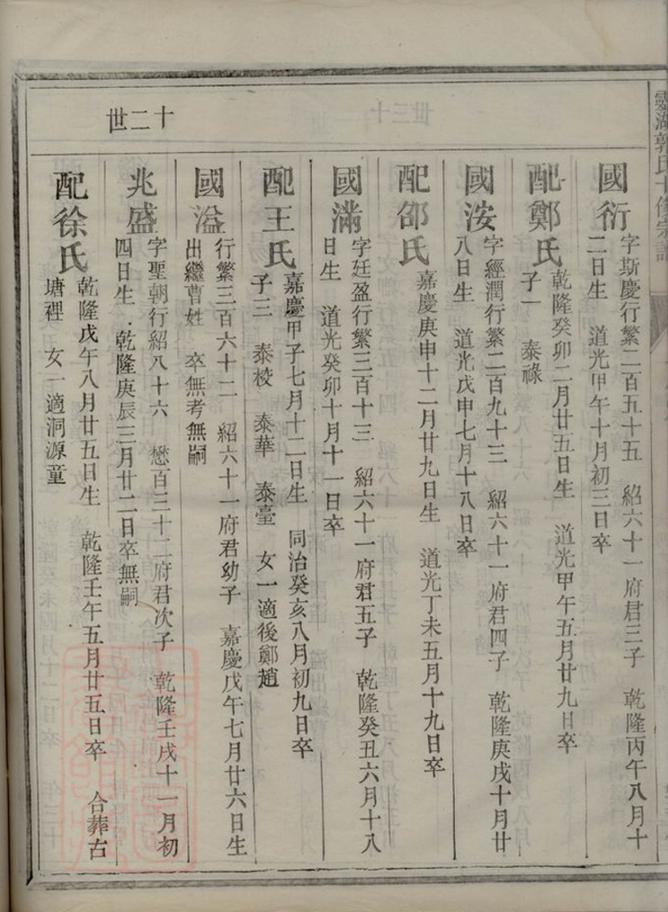 十三世
國衍
字斯慶行繁二百五十五　紹六十一府君三子　乾隆丙午八月十
二日生　道光甲午十月初三日卒
配鄭氏
乾隆癸卯二月廿五日生　道光甲午五月廿九日卒
子一　泰祿
國洝
字經潤行繁二百九十三　紹六十一府君四子　乾隆庚戌十月廿
八日生　道光戊申七月十八日卒
配邵氏
嘉慶庚申十二月廿九日生　道光丁未五月十九日卒
國滿
字廷盈行繁三百十三　紹六十一府君五子　乾隆癸丑六月十八
日生　道光癸卯十月十一日卒
配王氏
嘉慶甲子七月十二日生　同治癸亥八月初九日卒
子三　泰梭　泰華　泰臺　女一適後鄭趙
國溢
行繁三百六十二　紹六十一府君幼子　嘉慶戊午七月廿六日生
出繼曹姓　卒無考無嗣
十二世
兆盛
字聖朝行紹八十六　懋百三十二府君次子　乾隆壬戌十一月初
四日生　乾隆庚辰三月廿二日卒無嗣
配徐氏
乾隆戊午八月廿五日生　乾隆壬午五月廿五日卒　合葬古
塘裡　女一適洞源童